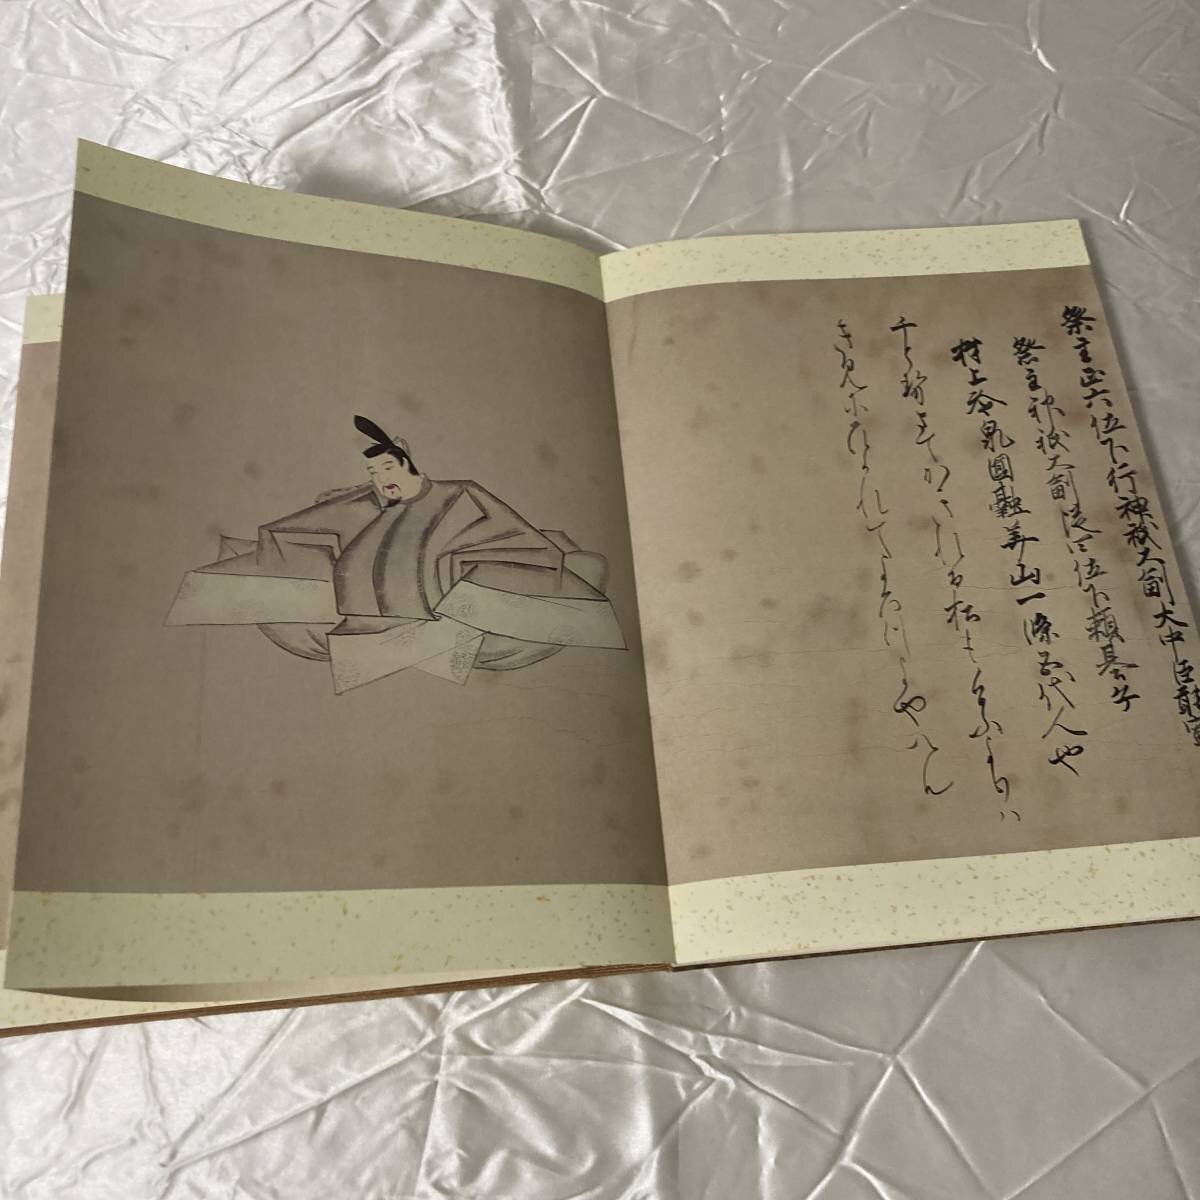 祭主正六位下行神祇大副大中臣能宣
祭主神祇大副従四位下頼基子
村上冷泉圓融華山一條五代人也
千とせまてかきれる松もけふよりハ
きみにひかれてよろつよやへん